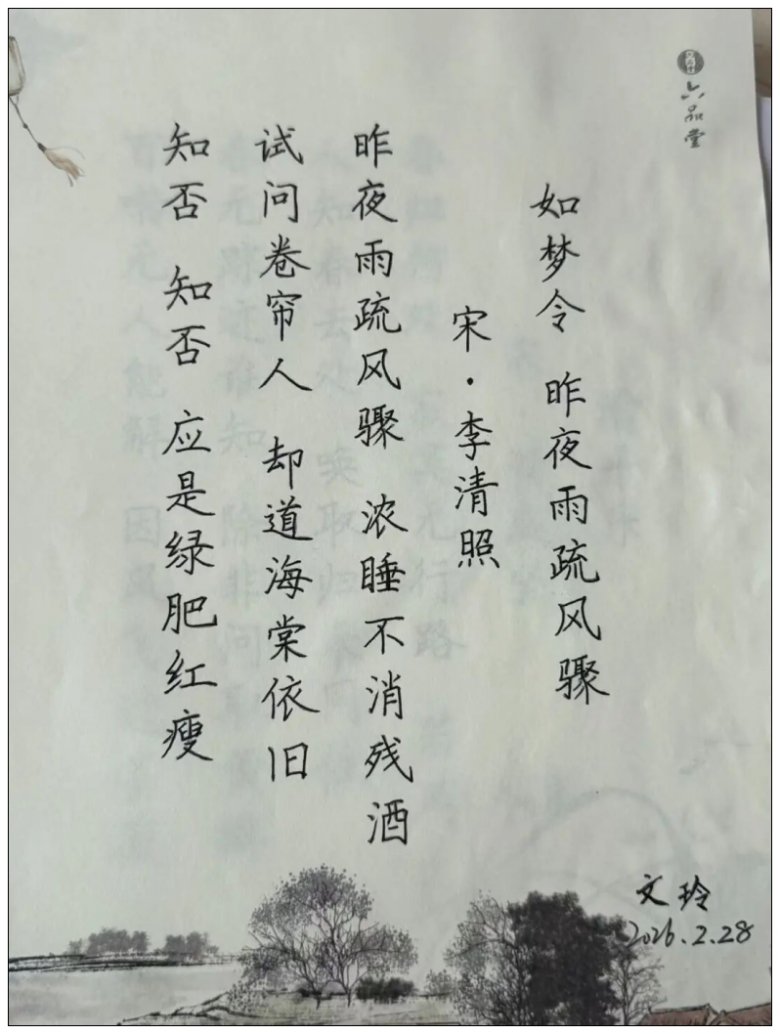 六品堂
如梦令 昨夜雨疏风骤
宋·李清照
昨夜雨疏风骤 浓睡不消残酒
试问卷帘人 却道海棠依旧
知否 知否 应是绿肥红瘦
文玲
2026.2.28